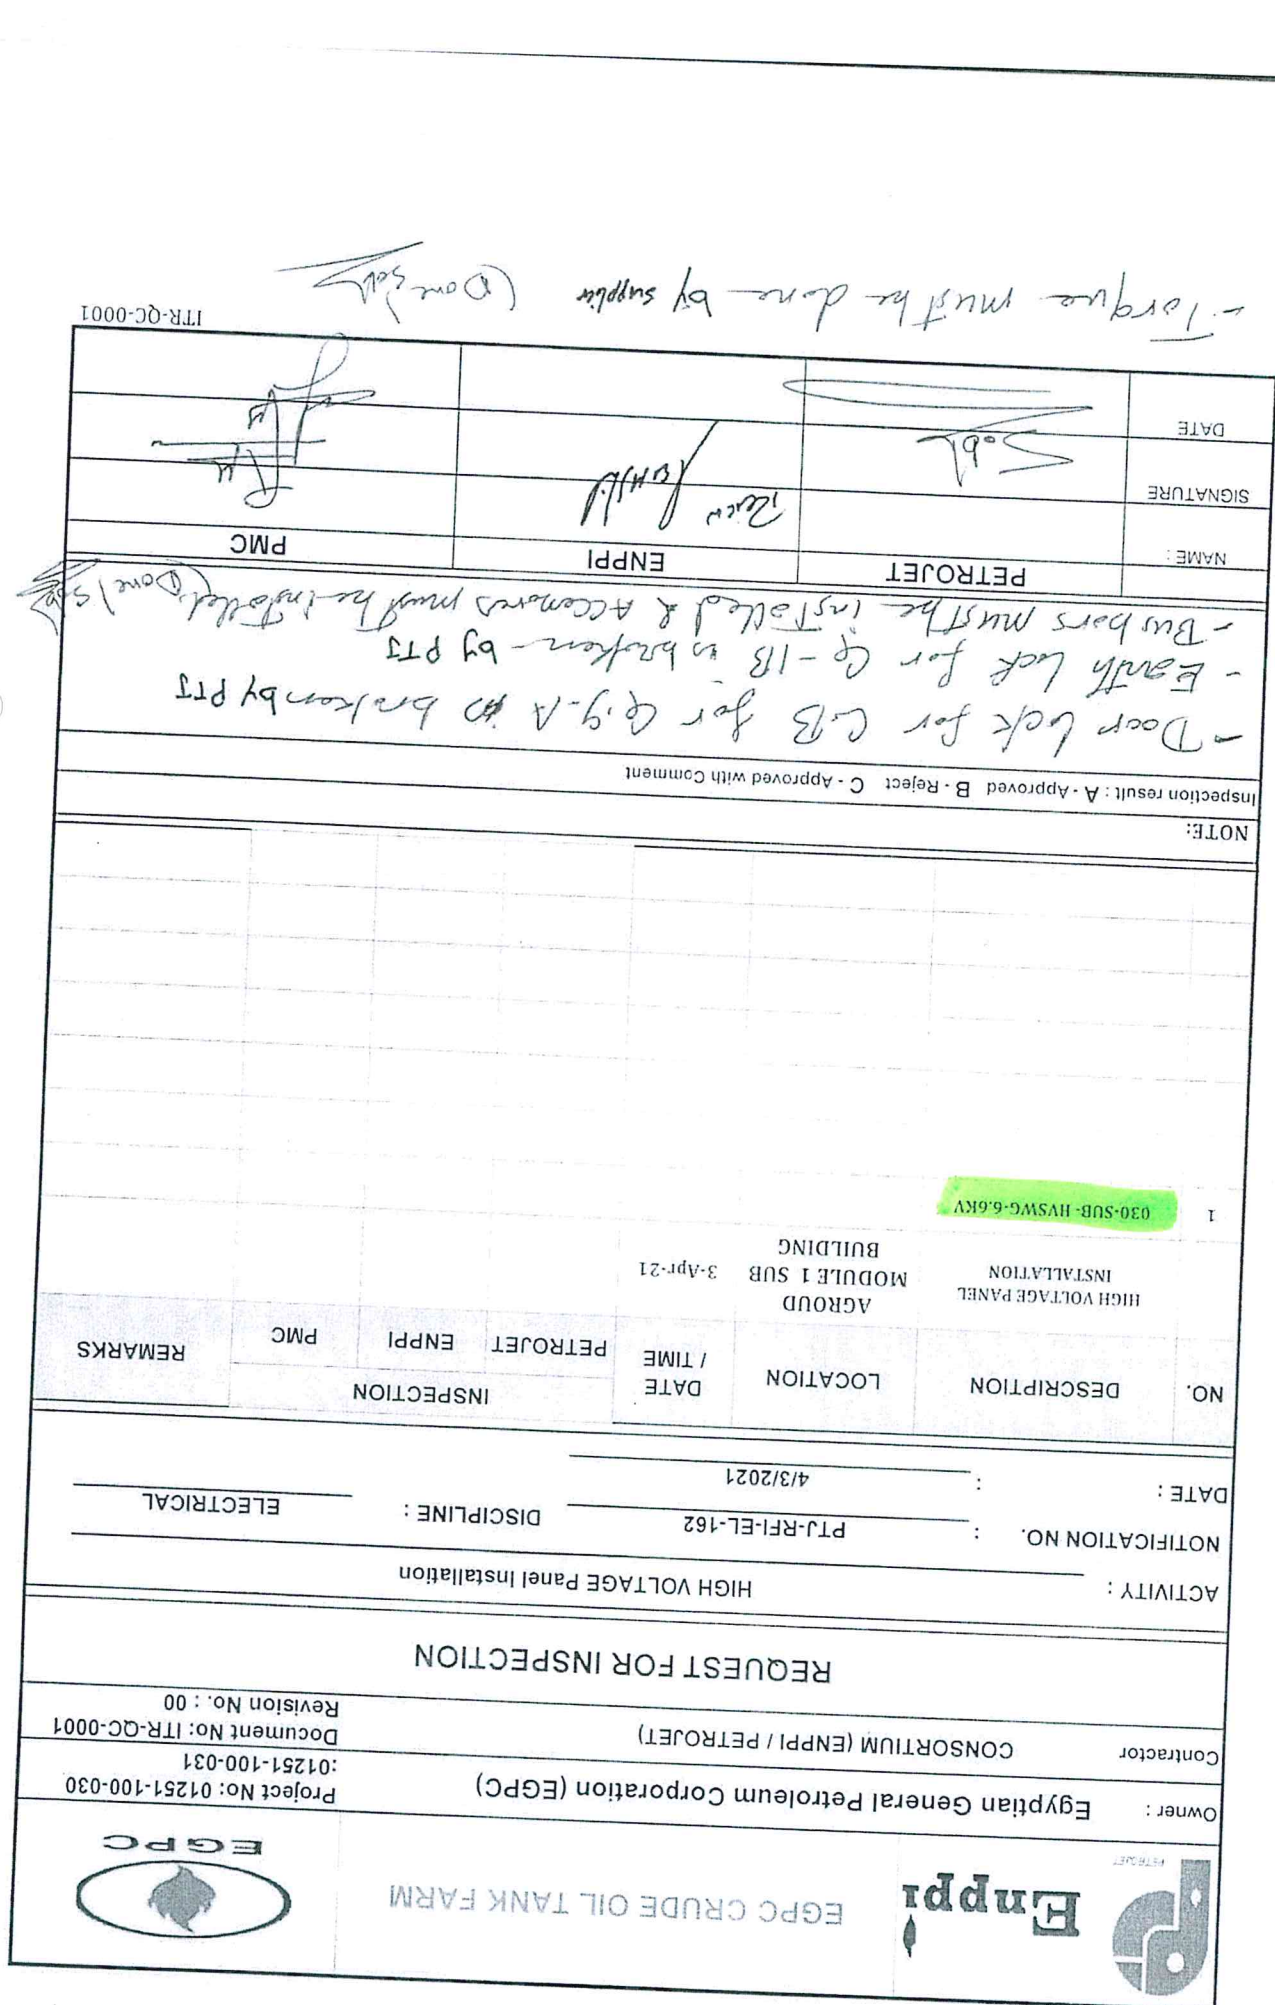 PETROJET
Enppi
EGPC CRUDE OIL TANK FARM
EGPC
Owner : Egyptian General Petroleum Corporation (EGPC)
Project No: 01251-100-030
:01251-100-031
Contractor CONSORTIUM (ENPPI / PETROJET)
Document No: ITR-QC-0001
Revision No. : 00
REQUEST FOR INSPECTION
ACTIVITY : HIGH VOLTAGE Panel Installation
NOTIFICATION NO. : PTJ-RFI-EL-162 DISCIPLINE : ELECTRICAL
DATE : : 4/3/2021
NO. DESCRIPTION LOCATION DATE / TIME INSPECTION REMARKS
PETROJET ENPPI PMC
HIGH VOLTAGE PANEL INSTALLATION AGROUD MODULE 1 SUB BUILDING 3-Apr-21
1 030-SUB- HVSWG-6.6KV
NOTE:
Inspection result : A - Approved B - Reject C - Approved with Comment
- Door lock for C.B for Q.9-A is broken by PTJ
- Earth lock for Q-1B is broken - by PTJ
- Bus bars must be installed & Accessories must be installed. (Done)
PETROJET ENPPI PMC
NAME :
SIGNATURE
DATE
ITR-QC-0001
- Torque must be done by supplier (Done